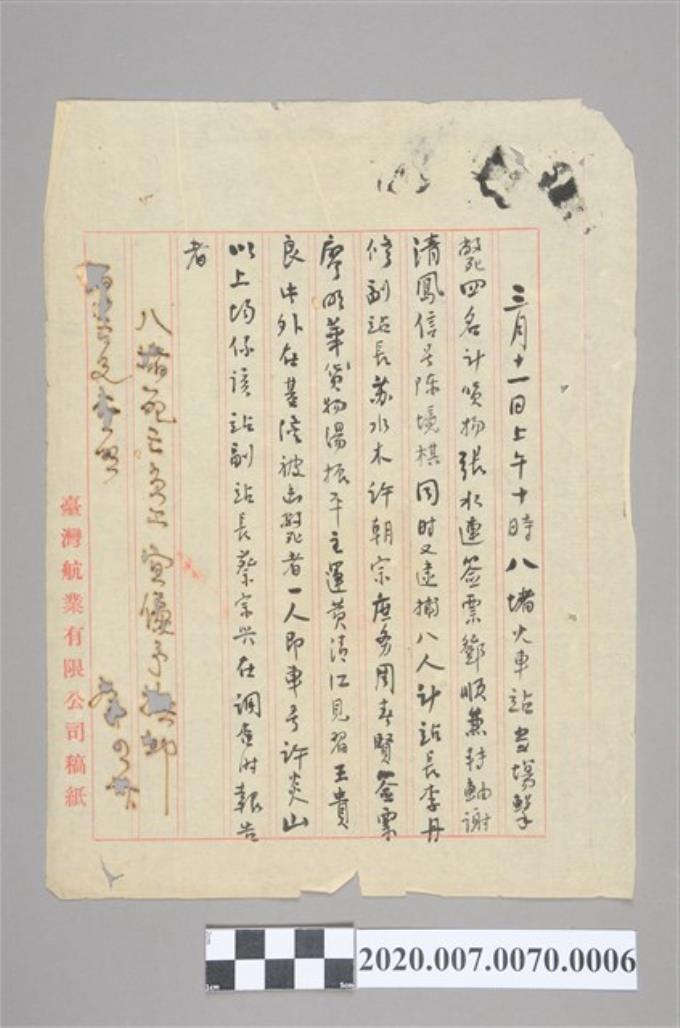 三月十一日上午十時八堵火車站當場擊
斃四名計喚物張水連簽票鄧順兼轉舳謝
清鳳信号陳境棋同時又逮捕八人計站長李丹
修副站長蘇水木許朝宗庶务周春賢簽票
廖明華貨物湯振平主運黄清江見習王貴
良中外在基隆被击斃死者一人即車号許炎山
以上均係該站副站長蔡宗兴在調查時報告
者
八堵死亡 宜優予撫卹
臺灣航業有限公司稿紙
2020.007.0070.0006